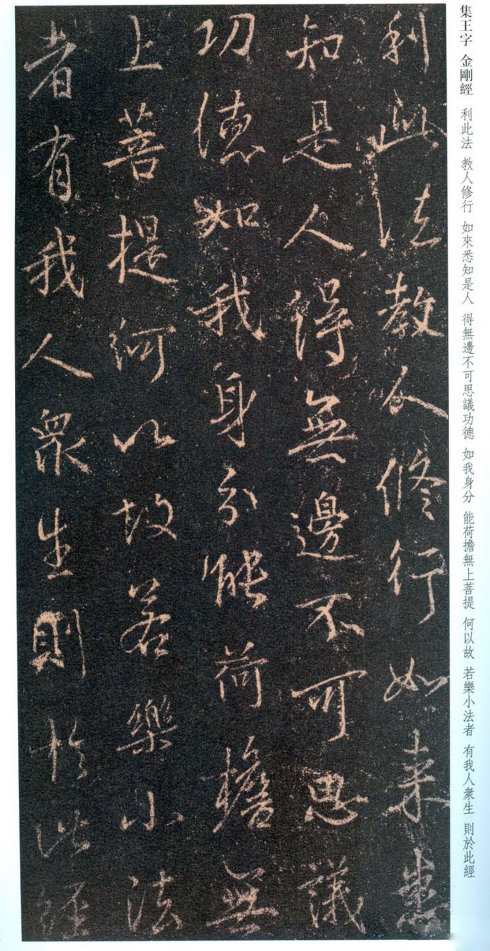 集王字 金剛經 利此法 教人修行 如來悉知是人 得無邊不可思議功德 如我身分 能荷擔無上菩提 何以故 若樂小法者 有我人衆生 則於此經
利此法教人修行如来悉
知是人得無邊不可思議
功德如我身分能荷擔無
上菩提何以故若樂小法
者有我人衆生則於此經